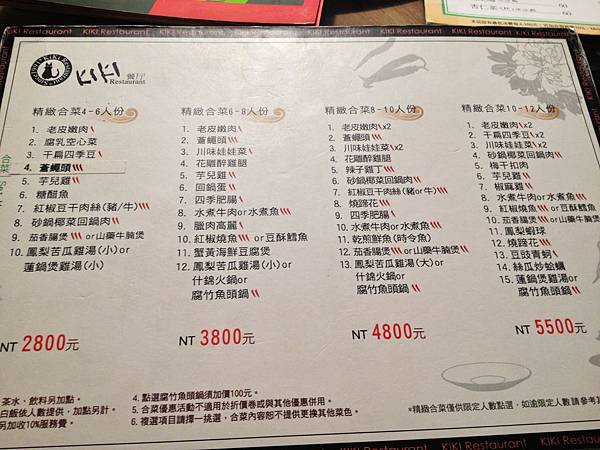 KIKI Restaurant
KIKI 餐廳
Restaurant
精緻合菜4-6人份
1. 老皮嫩肉
2. 腐乳空心菜
3. 干扁四季豆
4. 蒼蠅頭
5. 芋兒雞
6. 糖醋魚
7. 紅椒豆干肉絲(豬/牛)
8. 砂鍋椰菜回鍋肉
9. 茄香腸煲 or山藥牛腩煲
10. 鳳梨苦瓜雞湯(小)or
蓮鍋煲雞湯(小)
NT 2800元
精緻合菜6-8人份
1. 老皮嫩肉
2. 蒼蠅頭
3. 川味娃娃菜
4. 花雕醉雞腿
5. 芋兒雞
6. 回鍋蛋
7. 四季肥腸
8. 水煮牛肉or水煮魚
9. 臘肉高麗
10. 紅椒燒魚 or豆酥鱈魚
11. 蟹黃海鮮豆腐煲
12. 鳳梨苦瓜雞湯(小)or
什錦火鍋or
腐竹魚頭鍋
NT 3800元
精緻合菜8-10人份
1. 老皮嫩肉 x2
2. 蒼蠅頭
3. 川味娃娃菜 x2
4. 花雕醉雞腿
5. 辣子雞丁
6. 砂鍋椰菜回鍋肉
7. 紅椒豆干肉絲(豬or牛)
8. 燒蹄花
9. 四季肥腸
10. 水煮牛肉or水煮魚
11. 乾煎鮮魚(時令魚)
12. 茄香腸煲 or山藥牛腩煲
13. 鳳梨苦瓜雞湯(大)or
什錦火鍋or
腐竹魚頭鍋
NT 4800元
精緻合菜10-12人份
1. 老皮嫩肉 x2
2. 干扁四季豆 x2
3. 川味娃娃菜 x2
4. 砂鍋椰菜回鍋肉
5. 梅干扣肉
6. 芋兒雞
7. 椒麻雞
8. 水煮牛肉or水煮魚
9. 紅椒燒魚 or豆酥鱈魚
10. 茄香腸煲 or山藥牛腩煲
11. 鳳梨蝦球
12. 燒蹄花
13. 豆豉青蚵
14. 絲瓜炒蛤蠣
15. 蓮鍋煲雞湯(小)or
腐竹魚頭鍋
NT 5500元
茶水、飲料另加點。
白飯依人數提供，加點另計。
另加收10%服務費。
4. 點選腐竹魚頭鍋須加價100元。
5. 合菜優惠活動不適用於折價卷或與其他優惠併用。
6. 複選項目請擇一挑選，合菜內容恕不提供更換其他菜色。
*精緻合菜僅供限定人數點選，如逾限定人數請參考
KIKI Restaurant